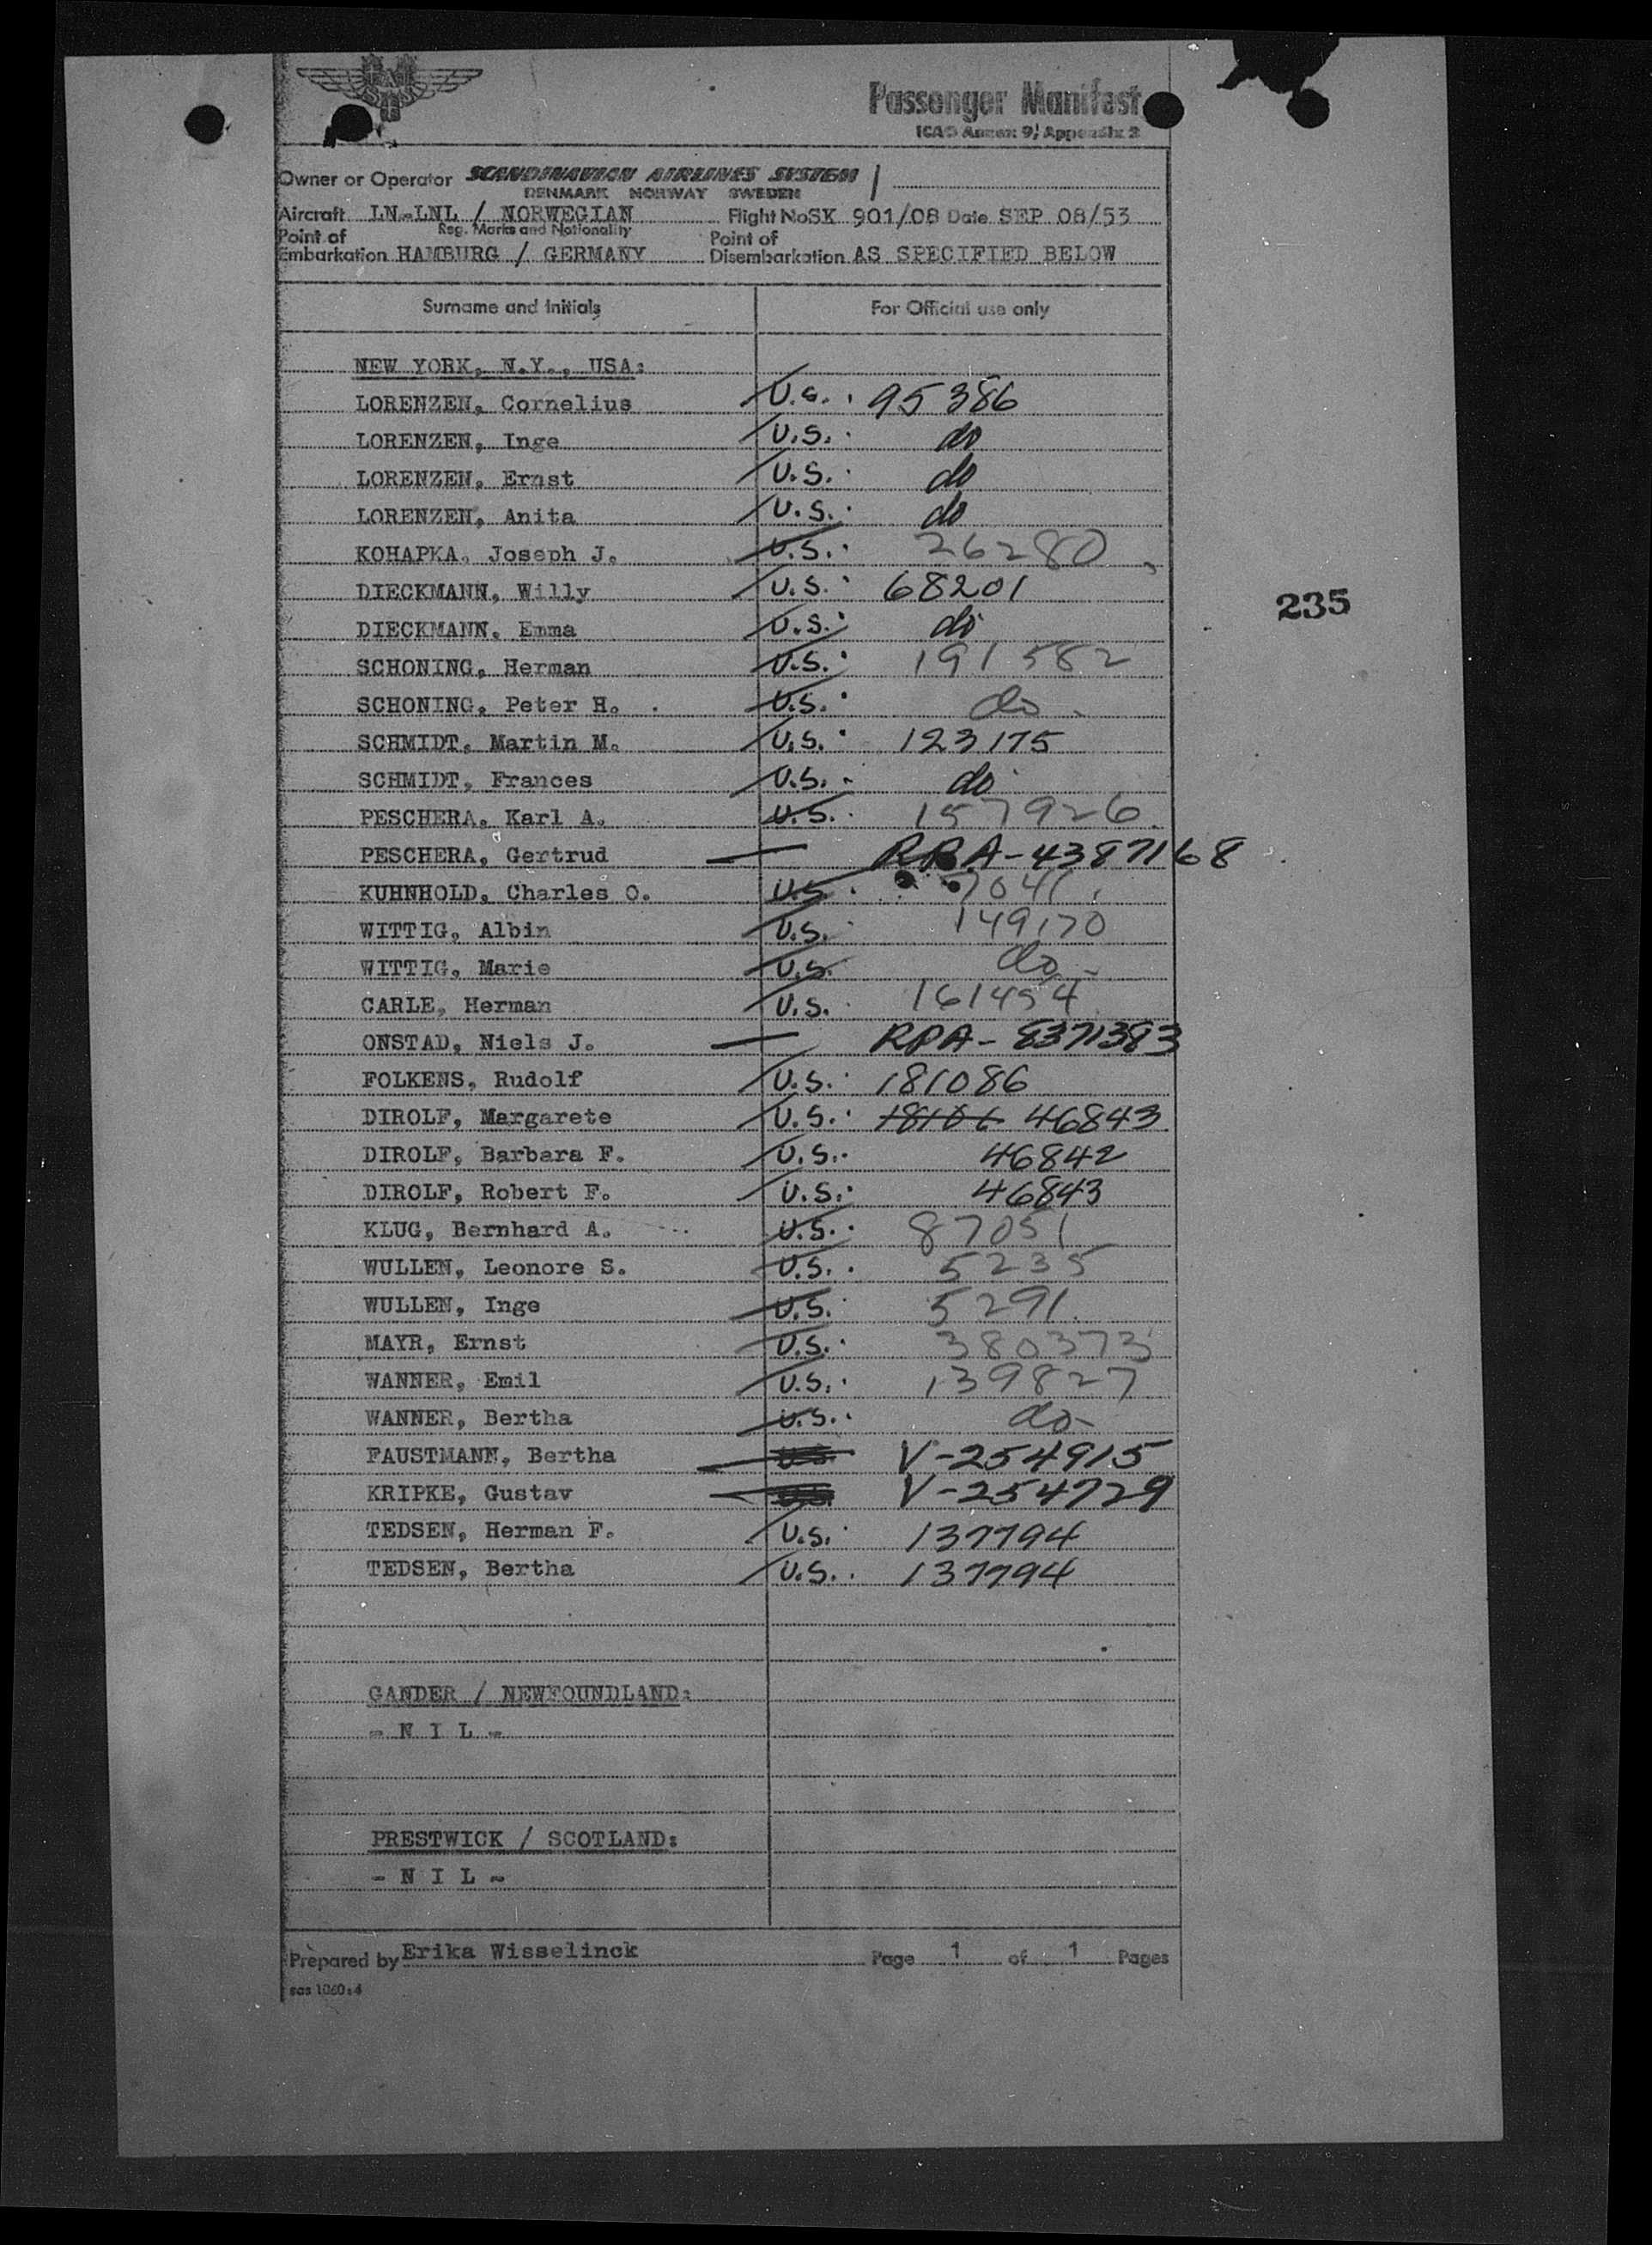 SAS
Passenger Manifest
ICAO Annex 9, Appendix 2
Owner or Operator SCANDINAVIAN AIRLINES SYSTEM
DENMARK NORWAY SWEDEN
Aircraft LN-LNL / NORWEGIAN Flight No SK 901/08 Date SEP 08/53
Reg. Marks and Nationality
Point of Embarkation HAMBURG / GERMANY Point of Disembarkation AS SPECIFIED BELOW
Surname and Initials For Official use only
NEW YORK, N.Y., USA:
LORENZEN, Cornelius U.S. 95386
LORENZEN, Inge U.S. do
LORENZEN, Ernst U.S. do
LORENZEN, Anita U.S. do
KOHAPKA, Joseph J. U.S. 26280
DIECKMANN, Willy U.S. 68201
DIECKMANN, Emma U.S. do
235
SCHONING, Herman U.S. 191582
SCHONING, Peter H. U.S. do
SCHMIDT, Martin M. U.S. 123175
SCHMIDT, Frances U.S. do
PESCHERA, Karl A. U.S. 157926
PESCHERA, Gertrud — RPA-4387168
KUHNHOLD, Charles O. U.S. 7041
WITTIG, Albin U.S. 149170
WITTIG, Marie U.S. do
CARLE, Herman U.S. 161454
ONSTAD, Niels J. — RPA-8371383
FOLKENS, Rudolf U.S. 181086
DIROLF, Margarete U.S. 46843
DIROLF, Barbara F. U.S. 46842
DIROLF, Robert F. U.S. 46843
KLUG, Bernhard A. U.S. 87051
WULLEN, Leonore S. U.S. 5235
WULLEN, Inge U.S. 5291
MAYR, Ernst U.S. 380373
WANNER, Emil U.S. 139827
WANNER, Bertha U.S. do
FAUSTMANN, Bertha V-254915
KRIPKE, Gustav V-254729
TEDSEN, Herman F. U.S. 137794
TEDSEN, Bertha U.S. 137794
GANDER / NEWFOUNDLAND:
- N I L -
PRESTWICK / SCOTLAND:
- N I L -
Prepared by Erika Wisselinck Page 1 of 1 Pages
sas 1060:4